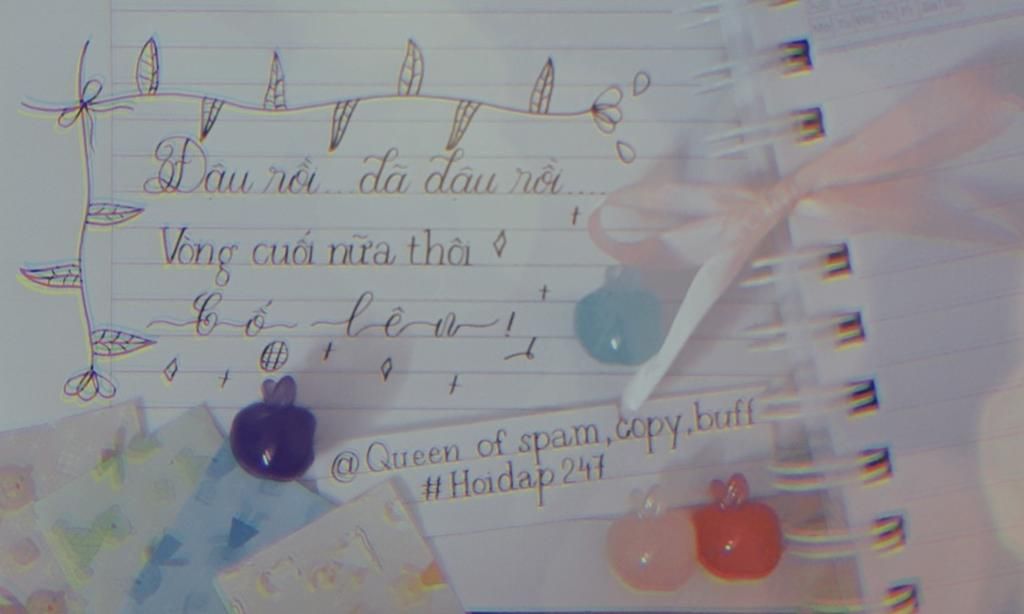 Đậu rồi...đã đậu rồi....
Vòng cuối nữa thôi
Cố lên!
@Queen of spam,copy,buff
#Hoidap247